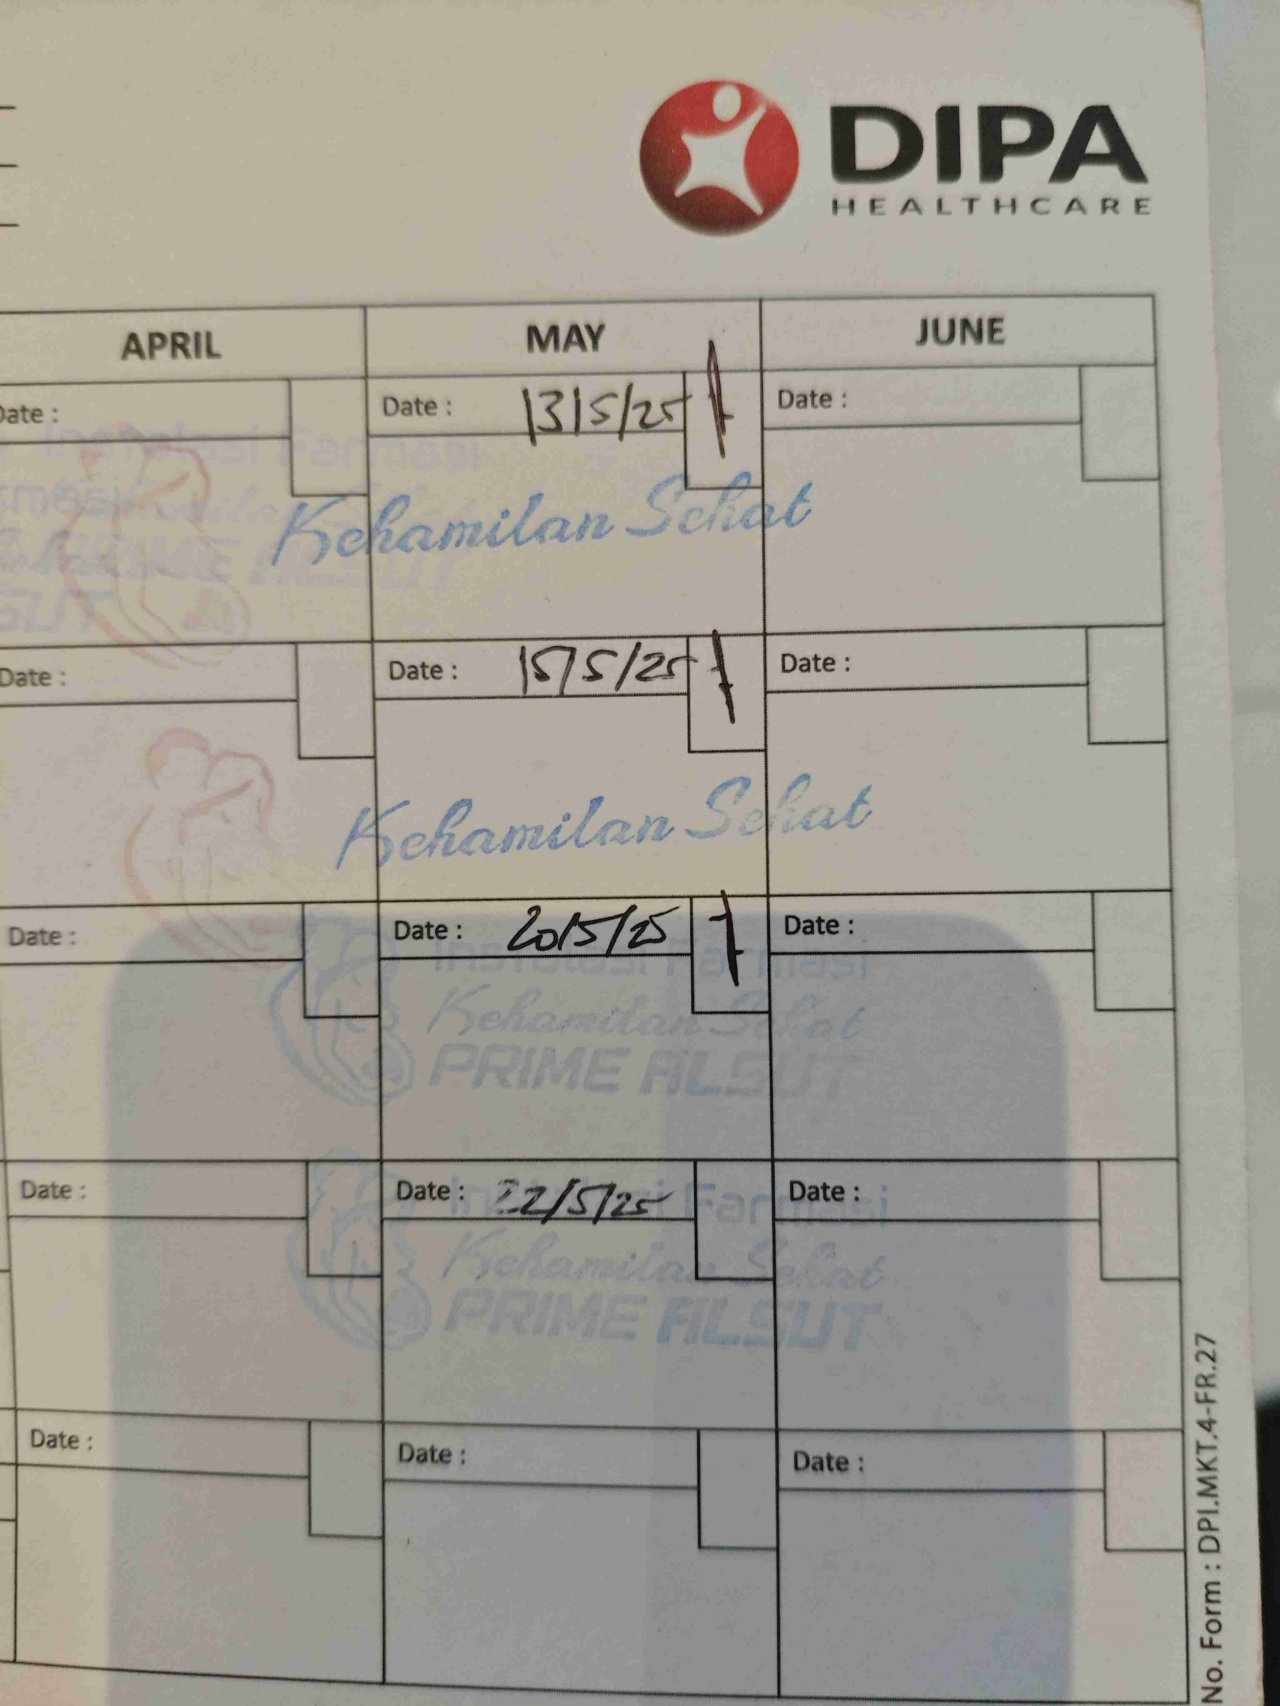 DIPA
HEALTHCARE
APRIL MAY JUNE
Date : Date : 13/5/25 Date :
Instalasi Farmasi
Kehamilan Sehat
Date : Date : 15/5/25 Date :
Kehamilan Sehat
Date : Date : 20/5/25 Date :
Instalasi Farmasi
Kehamilan Sehat
PRIME ALSUT
Date : Date : 22/5/25 Date :
Instalasi Farmasi
Kehamilan Sehat
PRIME ALSUT
Date : Date : Date :
No. Form : DPI.MKT.4-FR.27